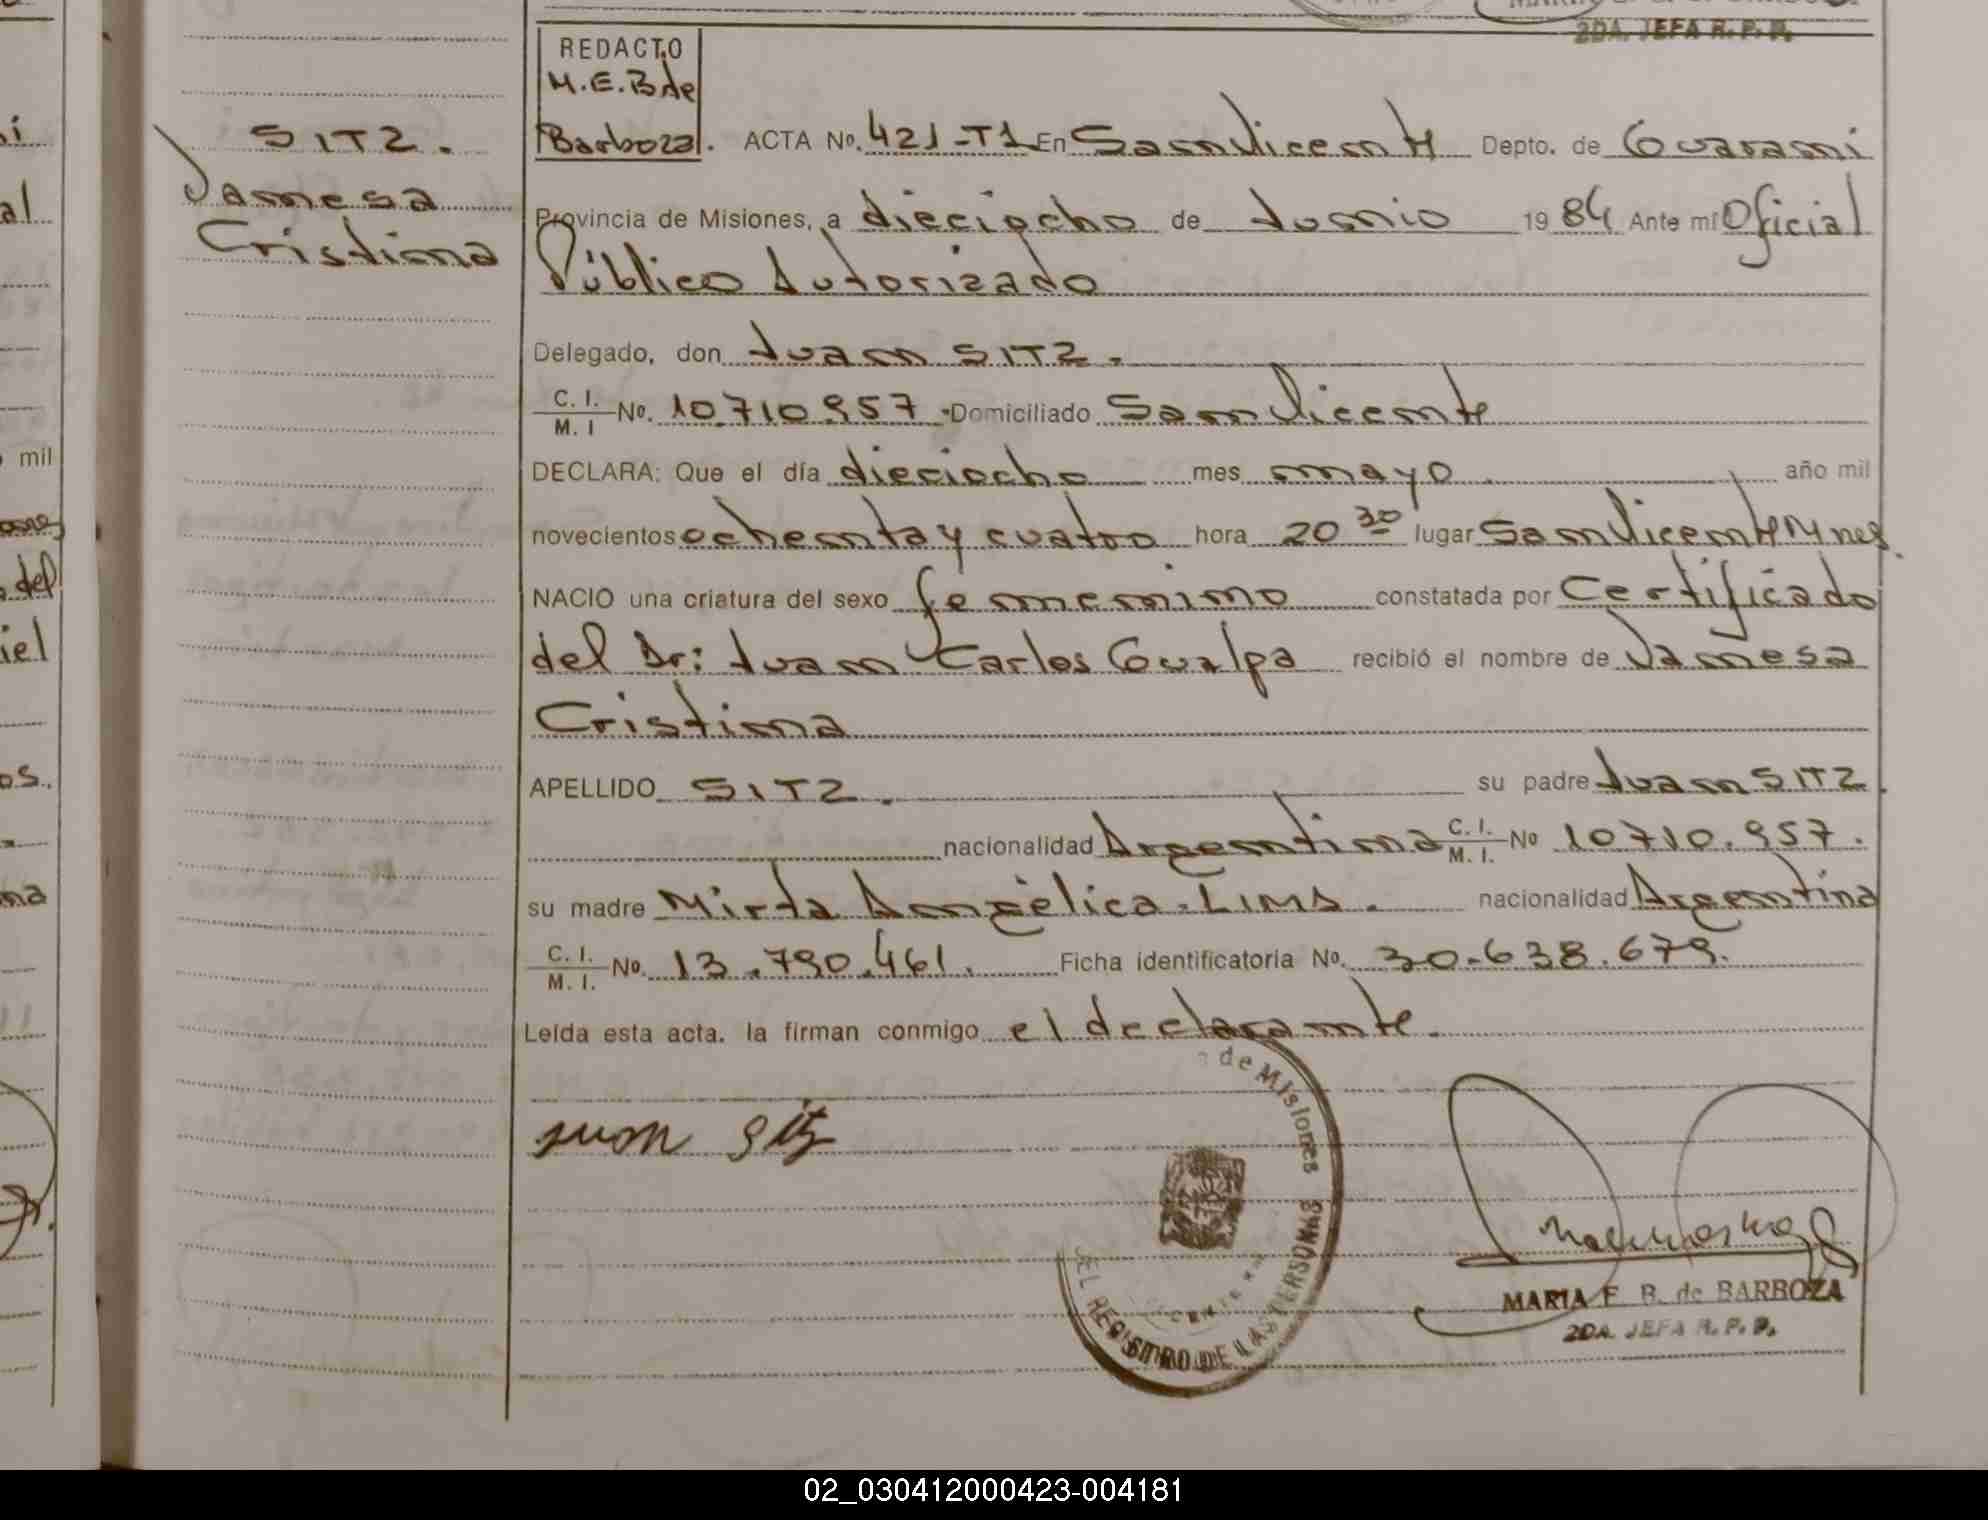 2DA. JEFA R. P. P.
REDACTO
M.E.B de
Barboza.
SITZ.
Vanesa
Cristina
ACTA No. 421-T1 En San Vicente Depto. de Guaraní
Provincia de Misiones, a dieciocho de Junio 1984 Ante mí Oficial
Público Autorizado
Delegado, don Juan SITZ.
C. I. / M. I No. 10.710.957 Domiciliado San Vicente
DECLARA: Que el día dieciocho mes mayo año mil
novecientos ochenta y cuatro hora 20 30 lugar San Vicente Mnes.
NACIO una criatura del sexo femenino constatada por Certificado
del Dr: Juan Carlos Gualpa recibió el nombre de Vanesa
Cristina
APELLIDO SITZ. su padre Juan SITZ.
nacionalidad Argentina C. I. / M. I. No 10710.957.
su madre Mirta Angélica LIMA. nacionalidad Argentina
C. I. / M. I. No. 13.790.461. Ficha identificatoria No. 30.638.679.
Leída esta acta. la firman conmigo el declarante.
Juan Sitz
de Misiones
DEL REGISTRO DE LAS PERSONAS
MARIA E. B. de BARBOZA
2DA. JEFA R. P. P.
mil
del
iel
02_030412000423-004181